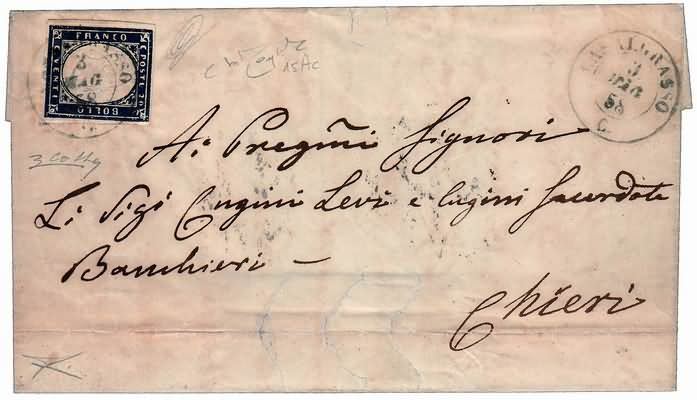 FRANCO
C. POSTE 20
BOLLO
C. VENTI
3
MAG
58
CASALGRASSO
3
MAG
58
A' Pregmi Signori
Li Sigi Cugini Levi e Cugini Sacerdote
Banchieri –
Chieri